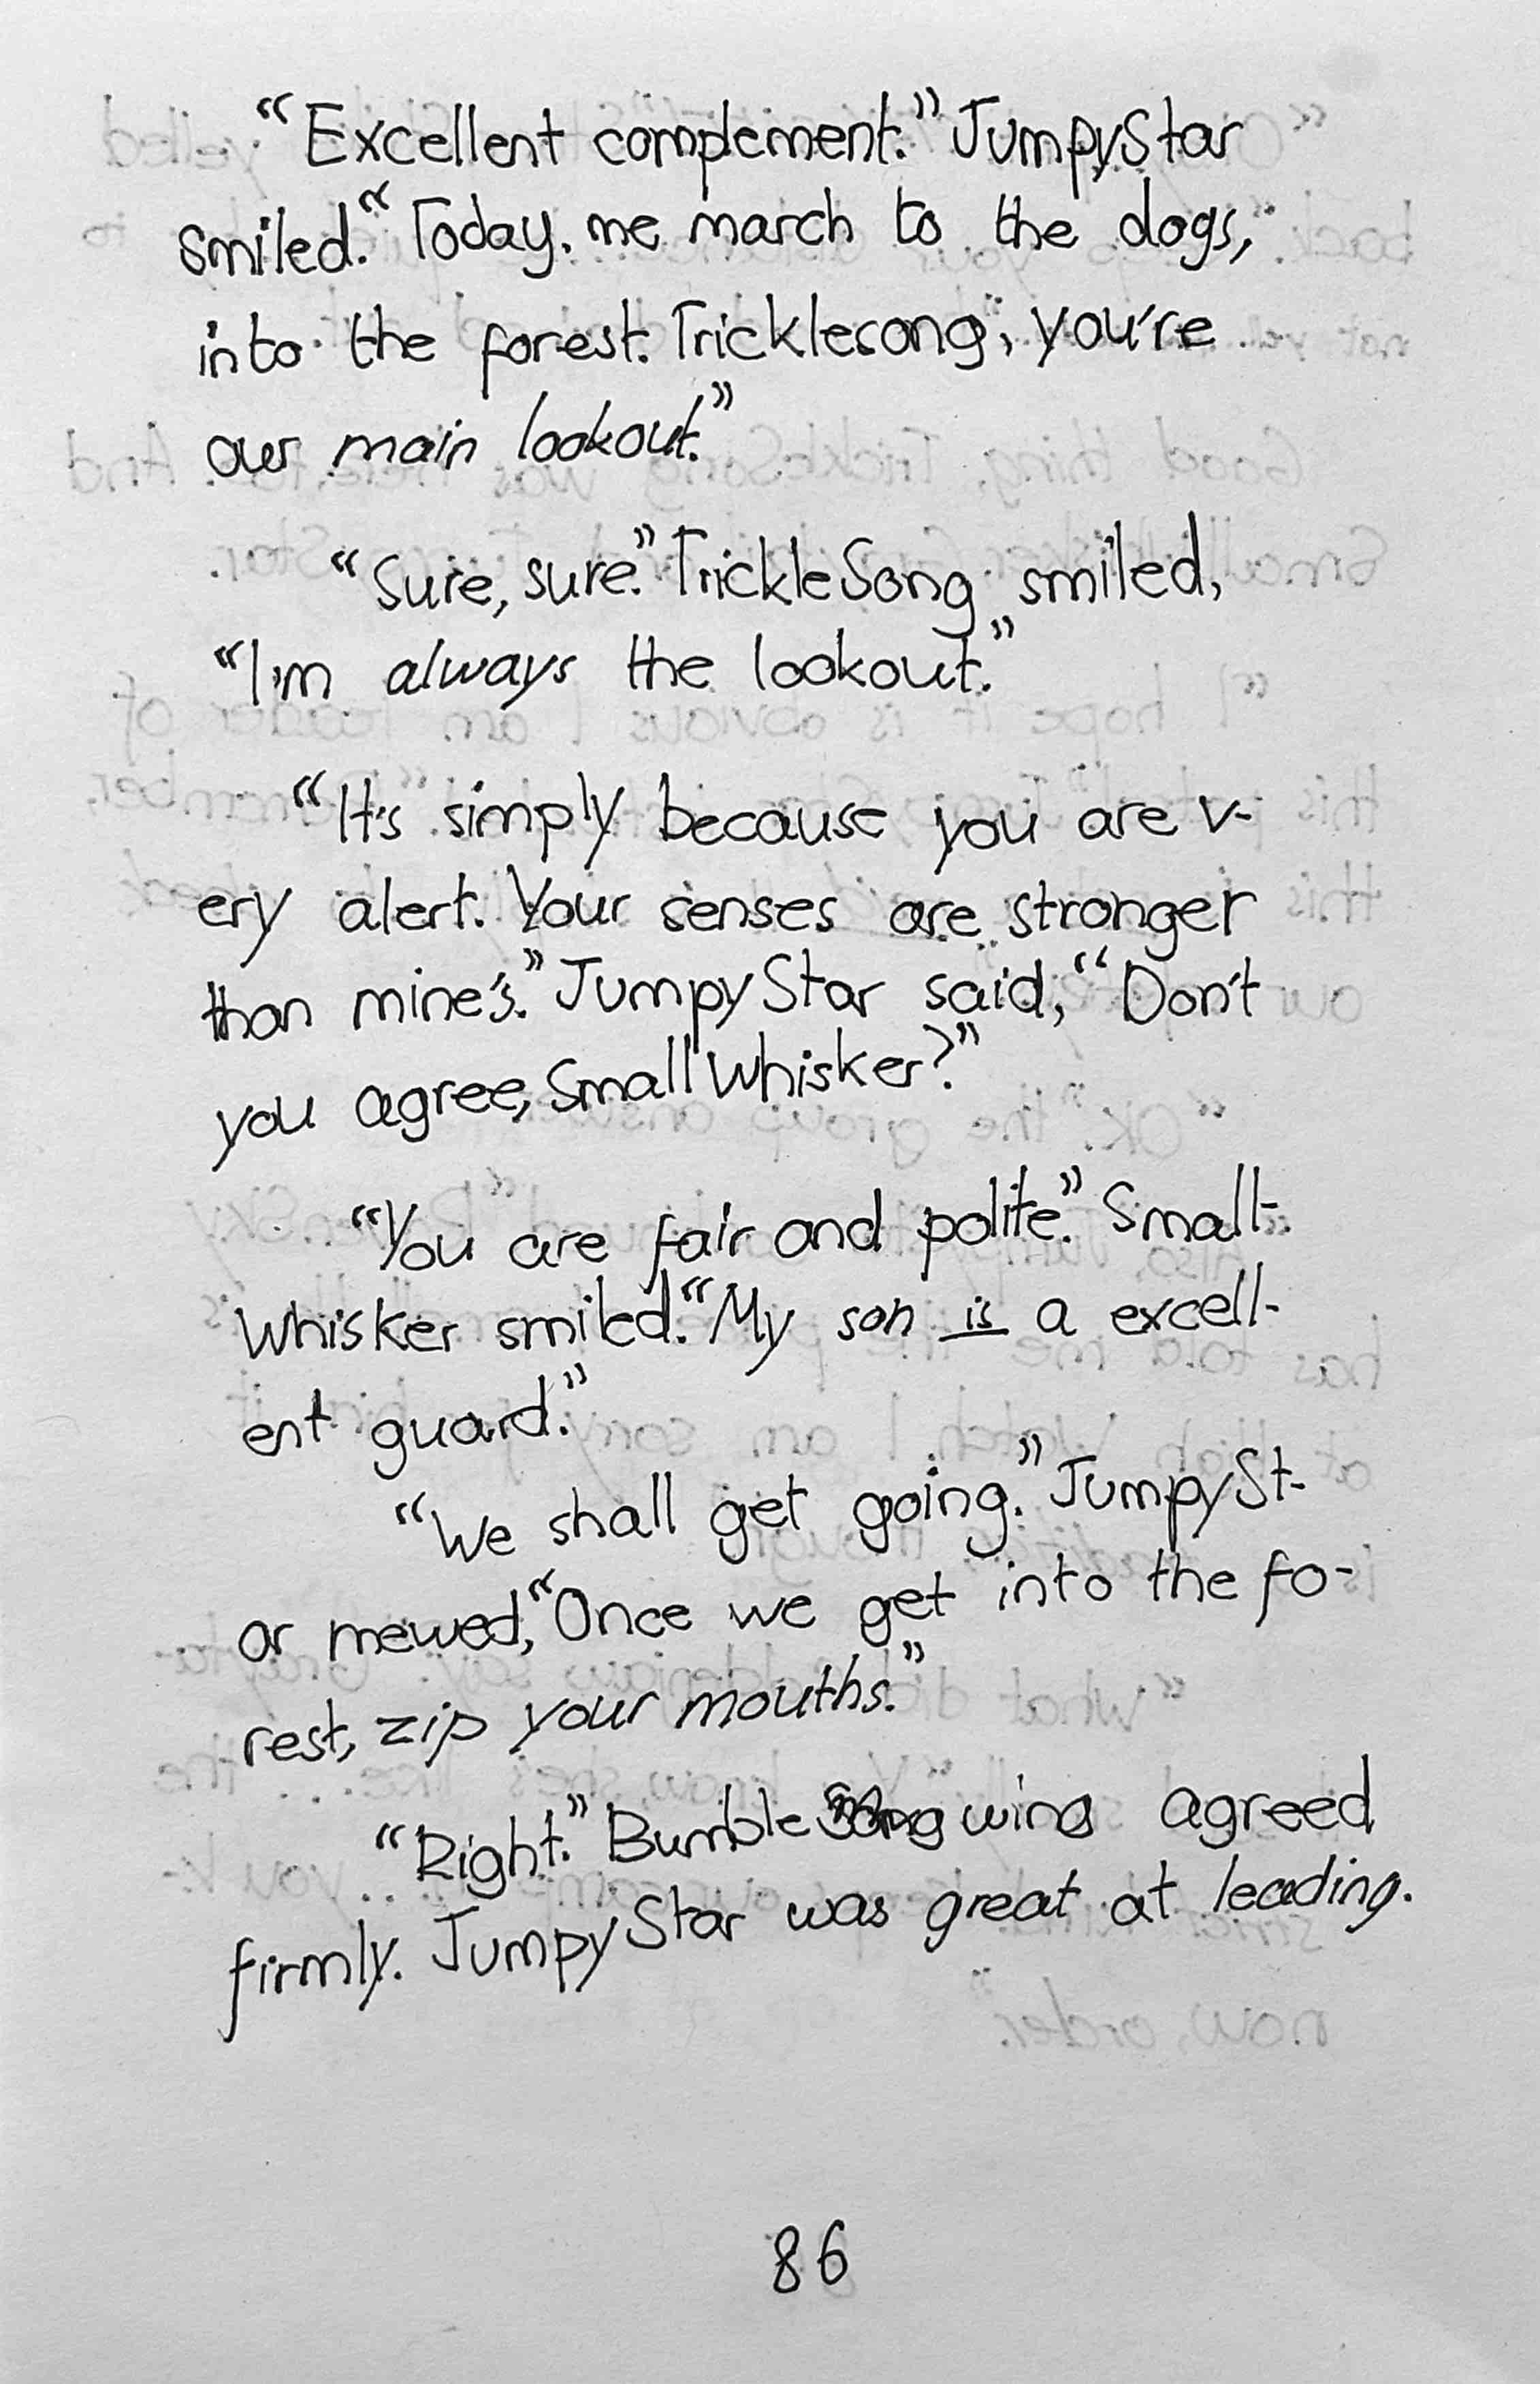 "Excellent complement." JumpyStar
smiled. "Today, me march to the dogs,
into the forest. Tricklesong, you're
our main lookout."
"Sure, sure." TrickleSong smiled,
"I'm always the lookout."
"It's simply because you are v-
ery alert. Your senses are stronger
than mine's." JumpyStar said, "Don't
you agree, SmallWhisker?"
"You are fair and polite." Small-
Whisker smiled. "My son is a excell-
ent guard."
"We shall get going." JumpySt-
ar mewed, "Once we get into the fo-
rest, zip your mouths."
"Right." Bumble wing agreed
firmly. JumpyStar was great at leading.
86